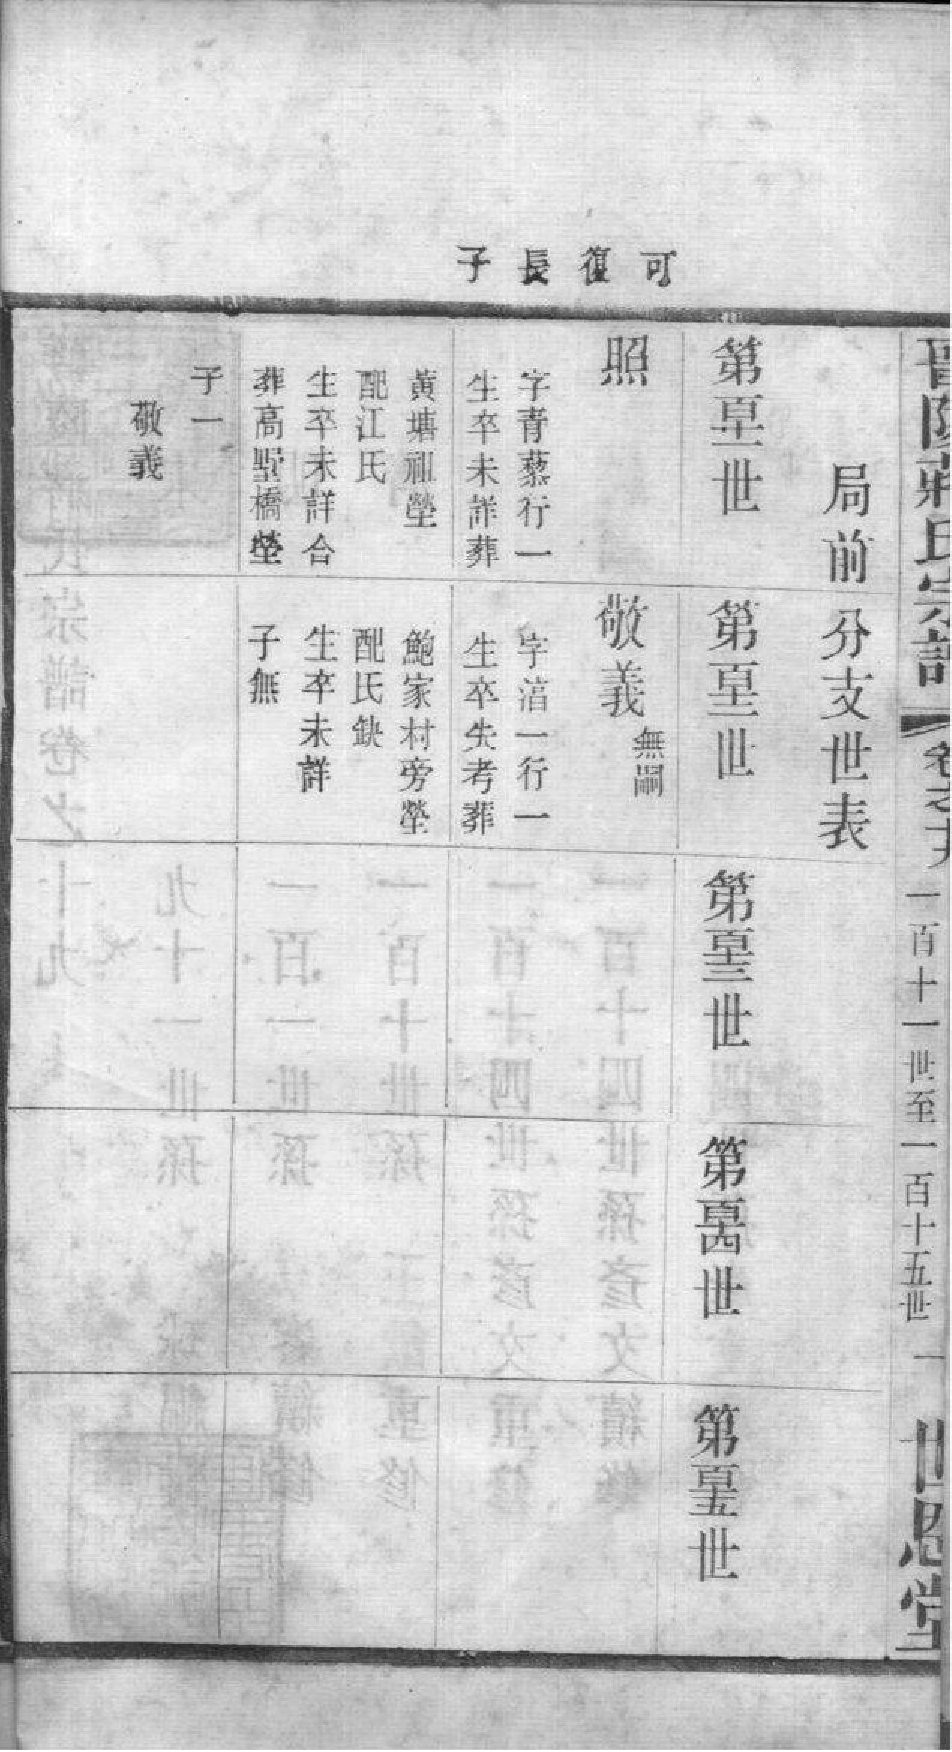 晋陵蔣氏宗譜
卷之十九
一百十一世至一百十五世
一
世恩堂
局前分支世表
可復長子
第百十一世
照
字青藜行一
生卒未詳葬
黃塘祖塋
配江氏
生卒未詳合
葬高墅橋塋
子一
敬義
第百十二世
敬義
無嗣
字湆一行一
生卒失考葬
鮑家村旁塋
配氏缺
生卒未詳
子無
第百十三世
第百十四世
第百十五世